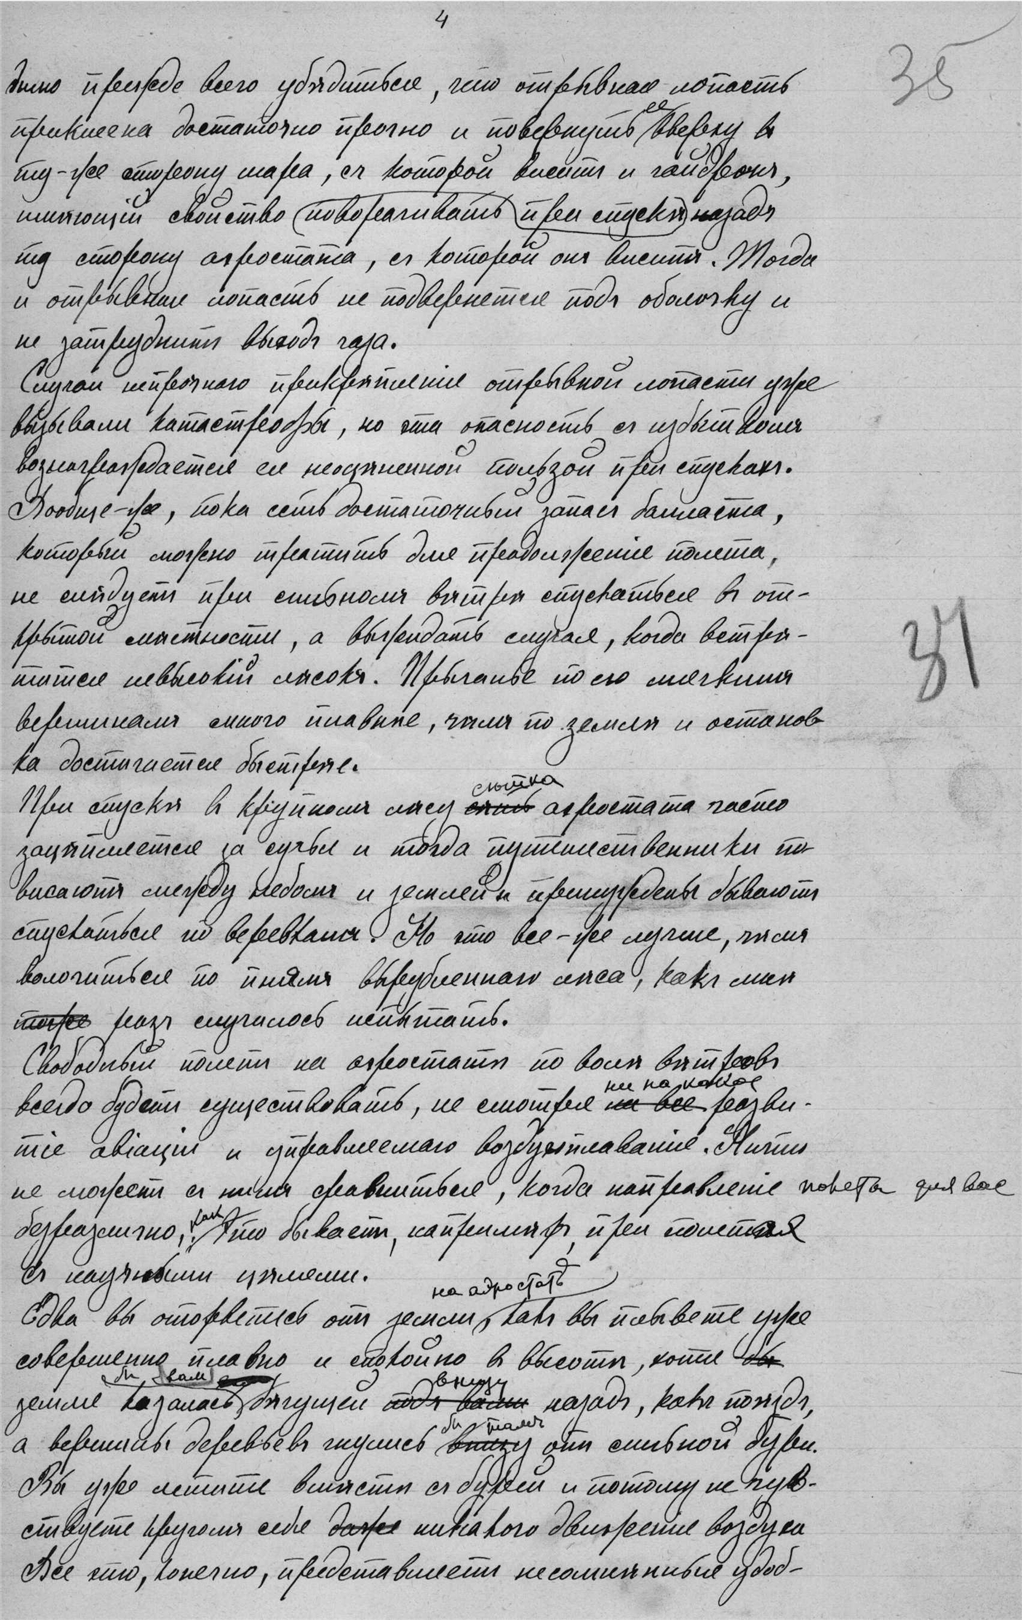 4
35
димо прежде всего убѣдиться, что отрывная лопасть
приклеена достаточно прочно и повернуть ее вверху въ
ту-же сторону шара, съ которой виситъ и гайдропъ,
имѣющій свойство поворачивать при спускѣ назадъ
ту сторону аэростата, съ которой онъ виситъ. Тогда
и отрывная лопасть не подвернется подъ оболочку и
не затруднитъ выходъ газа.
Случаи непрочнаго прикрѣпленія отрывной лопасти уже
вызывали катастрофы, но эта опасность съ избыткомъ
вознаграждается ея неоцѣненной пользой при спускахъ.
Вообще-же, пока есть достаточный запасъ балласта,
который можно тратить для продолженія полета,
не слѣдуетъ при сильномъ вѣтрѣ спускаться въ от-
крытой мѣстности, а выжидать случая, когда встрѣ-
тится невысокій лѣсокъ. Прыганье по его мягкимъ
вершинамъ много плавнѣе, чѣмъ по землѣ и останов-
ка достигается быстрѣе.
37
При спускѣ въ крупномъ лѣсу сѣтка аэростата часто
зацѣпляется за сучья и тогда путешественники по-
висаютъ между небомъ и землей и принуждены бываютъ
спускаться по веревкамъ. Но это все-же лучше, чѣмъ
волочиться по пнямъ вырубленнаго лѣса, какъ мнѣ
тоже разъ случалось испытать.
Свободный полетъ на аэростатѣ по волѣ вѣтровъ
всегда будетъ существовать, не смотря ни на какое разви-
тіе авіаціи и управляемаго воздухоплаванія. Ничто
не можетъ съ нимъ сравниться, когда направленіе полета для вас
безразлично, какъ это бываетъ, напримѣръ, при полетах
съ научными цѣлями.
Едва вы оторветесь отъ земли на аэростатѣ, какъ вы плывете уже
совершенно плавно и спокойно въ высотѣ, хотя бы
земля казалась бы вам бѣгущей внизу назадъ, какъ поѣздъ,
а вершины деревьевъ гнулись бы тамъ отъ сильной бури.
Вы уже летите вмѣстѣ съ бурей и потому не чув-
ствуете кругомъ себя даже никакого движенія воздуха
Все это, конечно, представляетъ несомнѣнныя удоб-